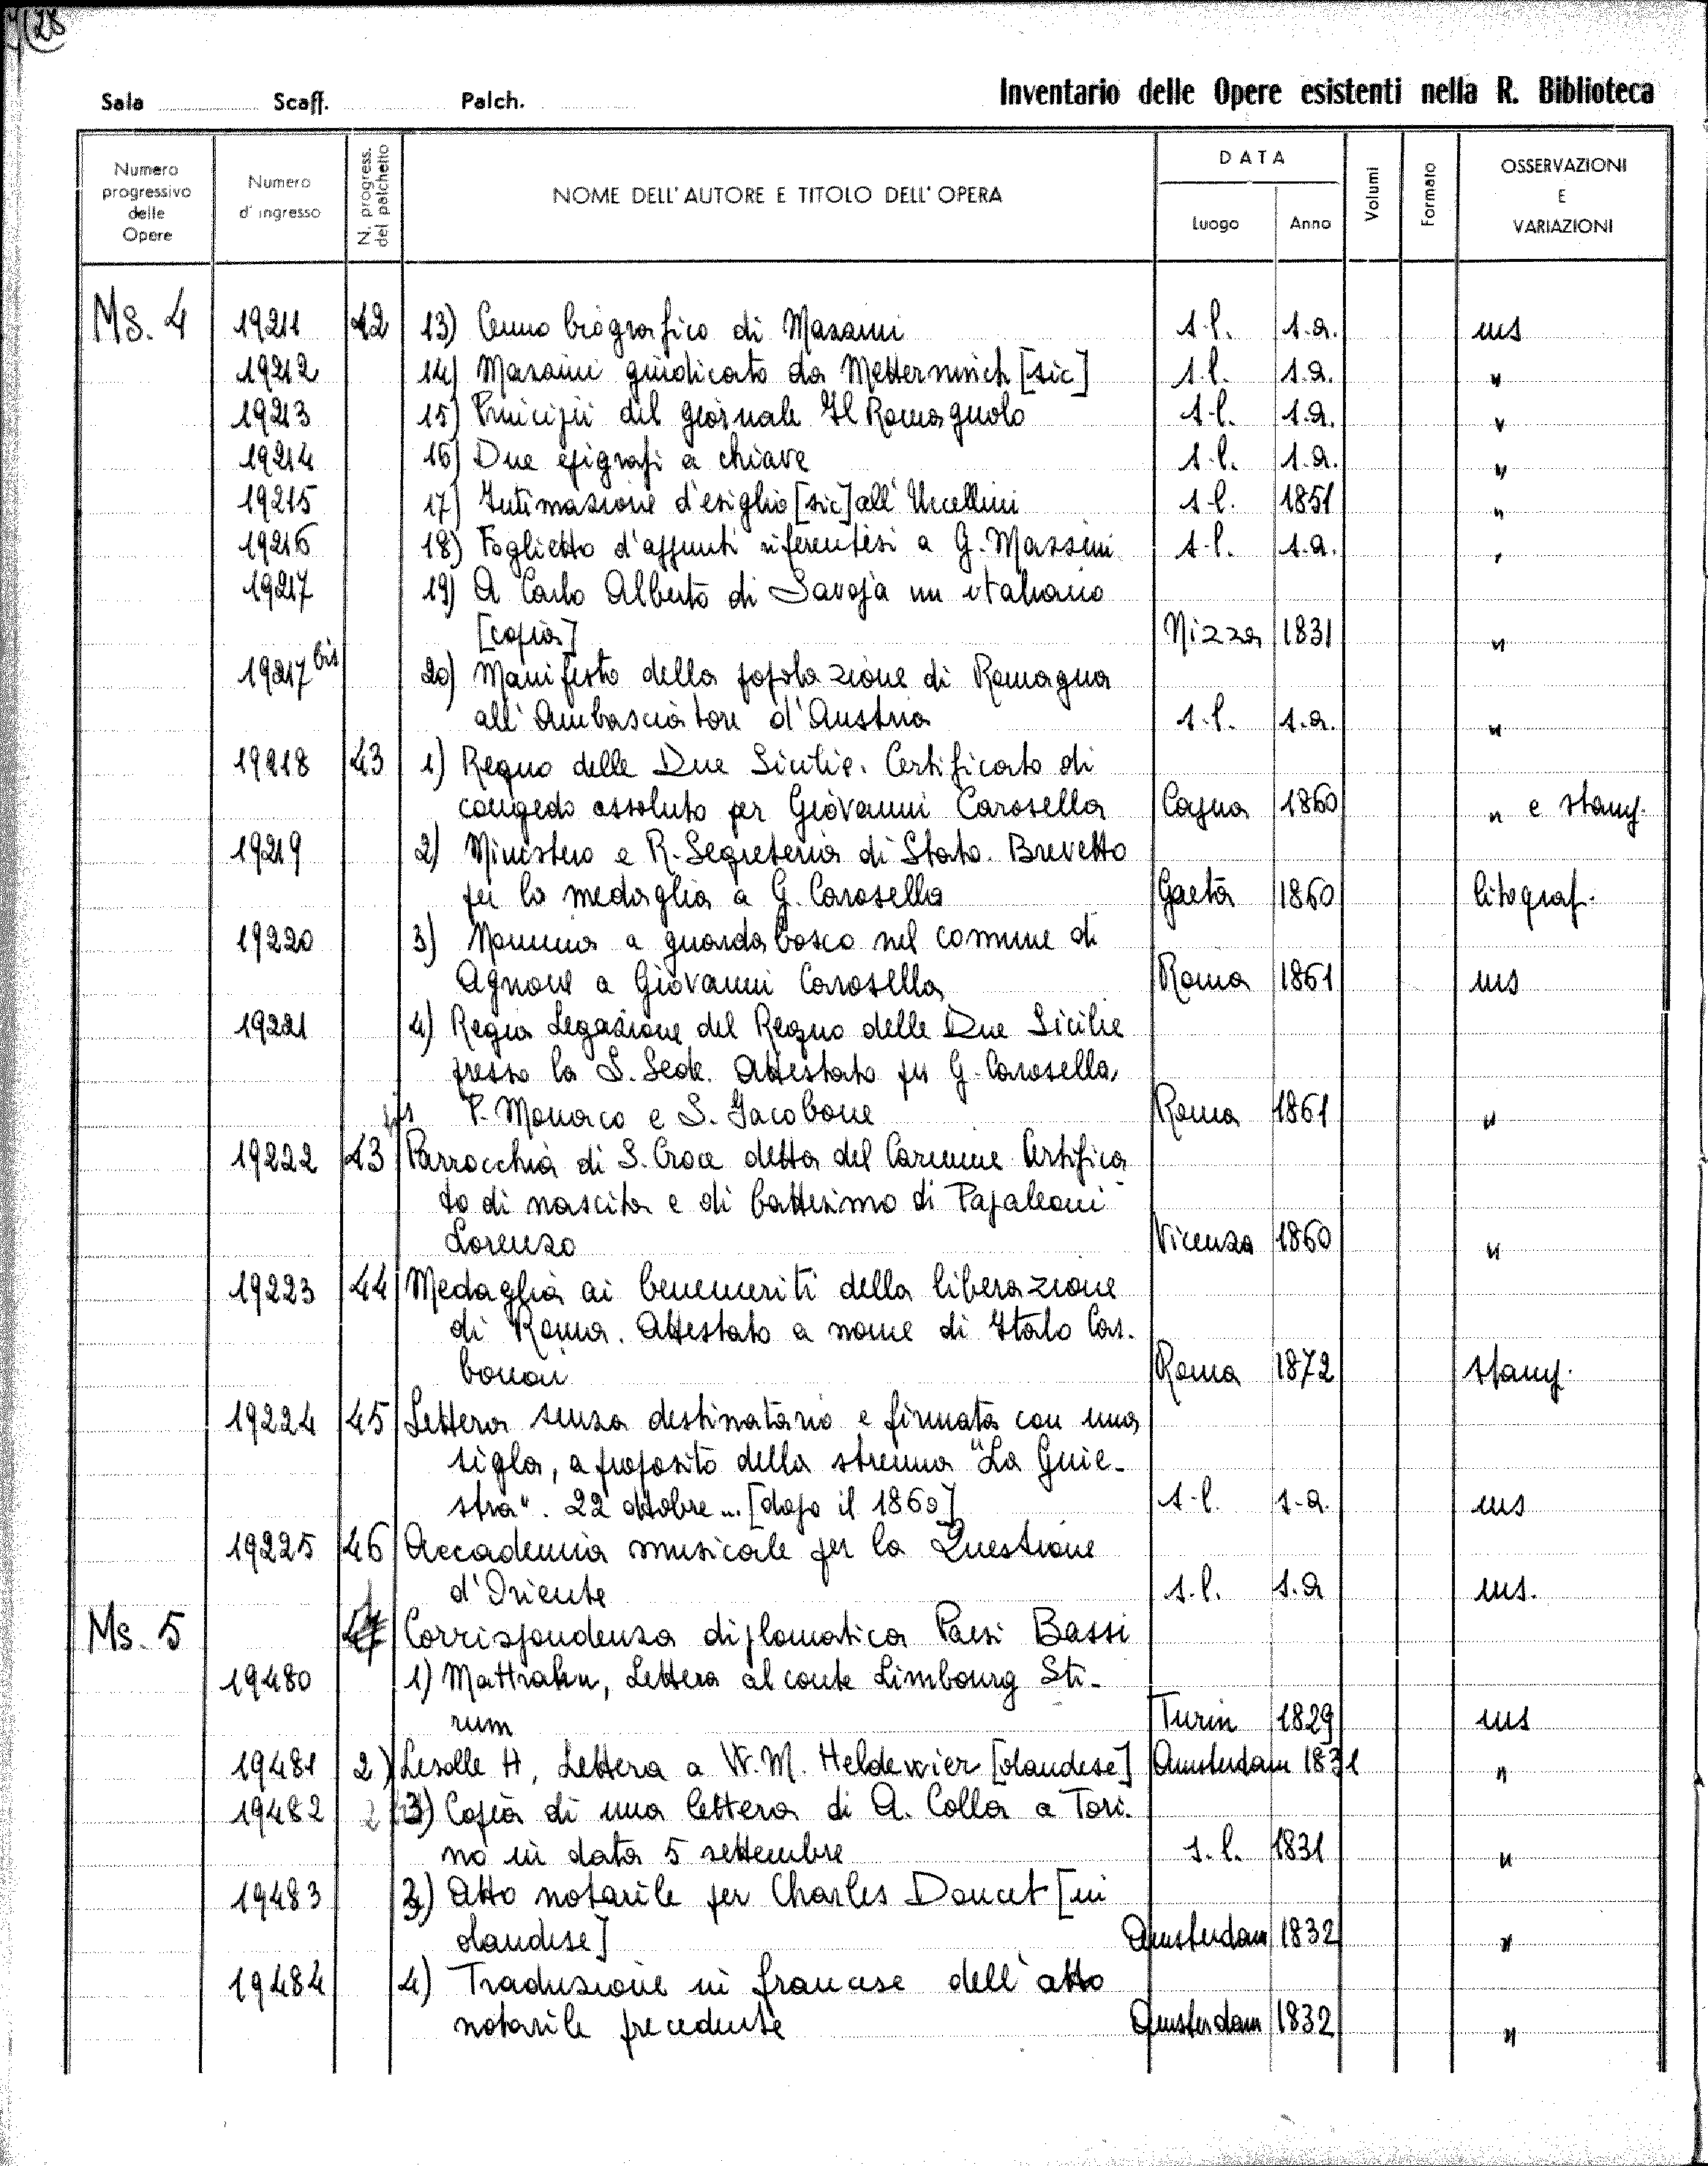 4/28
Sala Scaff. Palch. Inventario delle Opere esistenti nella R. Biblioteca
Numero progressivo delle Opere
Numero d'ingresso
N. progress. del palchetto
NOME DELL'AUTORE E TITOLO DELL'OPERA
DATA
Luogo Anno
Volumi
Formato
OSSERVAZIONI E VARIAZIONI
Ms. 4 19211 42 13) Cenno biografico di Mazzini s.l. s.a. ms
19212 14) Mazzini giudicato da Metterninch [sic] s.l. s.a. "
19213 15) Principii del giornale Il Romagnolo s.l. s.a. "
19214 16) Due epigrafi a chiave s.l. s.a. "
19215 17) Intimazione d'esiglio [sic] all'Uccellini s.l. 1851 "
19216 18) Foglietto d'appunti riferentesi a G. Mazzini s.l. s.a. "
19217 19) A Carlo Alberto di Savoja un italiano
[copia] Nizza 1831 "
19217 bis 20) Manifesto della popolazione di Romagna
all'Ambasciatore d'Austria s.l. s.a. "
19218 43 1) Regno delle Due Sicilie. Certificato di
congedo assoluto per Giovanni Carosella Capua 1860 " e stamp.
19219 2) Ministero e R. Segreteria di Stato. Brevetto
per la medaglia a G. Carosella Gaeta 1860 litograf.
19220 3) Nomina a guardabosco nel comune di
Agnone a Giovanni Carosella Roma 1861 ms
19221 4) Regia Legazione del Regno delle Due Sicilie
presso la S. Sede. Attestato per G. Carosella,
P. Monaco e S. Jacobone Roma 1861 "
19222 43 bis Parrocchia di S. Croce detta del Carmine Certifica
to di nascita e di battesimo di Papaleoni
Lorenzo Vicenza 1860 "
19223 44 Medaglia ai benemeriti della liberazione
di Roma. Attestato a nome di Italo Car-
bonai Roma 1872 stamp.
19224 45 Lettera senza destinatario e firmata con una
sigla, a proposito della strenna "La Gine-
stra". 22 ottobre... [dopo il 1860] s.l. s.a. ms
19225 46 Accademia musicale per la Questione
d'Oriente s.l. s.a ms.
Ms. 5 Corrispondenza diplomatica Paesi Bassi
19480 1) Mattrahn, Lettera al conte Limbourg Sti-
rum Turin 1829 ms
19481 2) Lesolle H, Lettera a W. M. Heldewier [olandese] Amsterdam 1831 "
19482 2 3) Copia di una lettera di A. Colla a Tori-
no in data 5 settembre s.l. 1831 "
19483 3) Atto notarile per Charles Doucet [in
olandese] Amsterdam 1832 "
19484 4) Traduzione in francese dell'atto
notarile precedente Amsterdam 1832 "